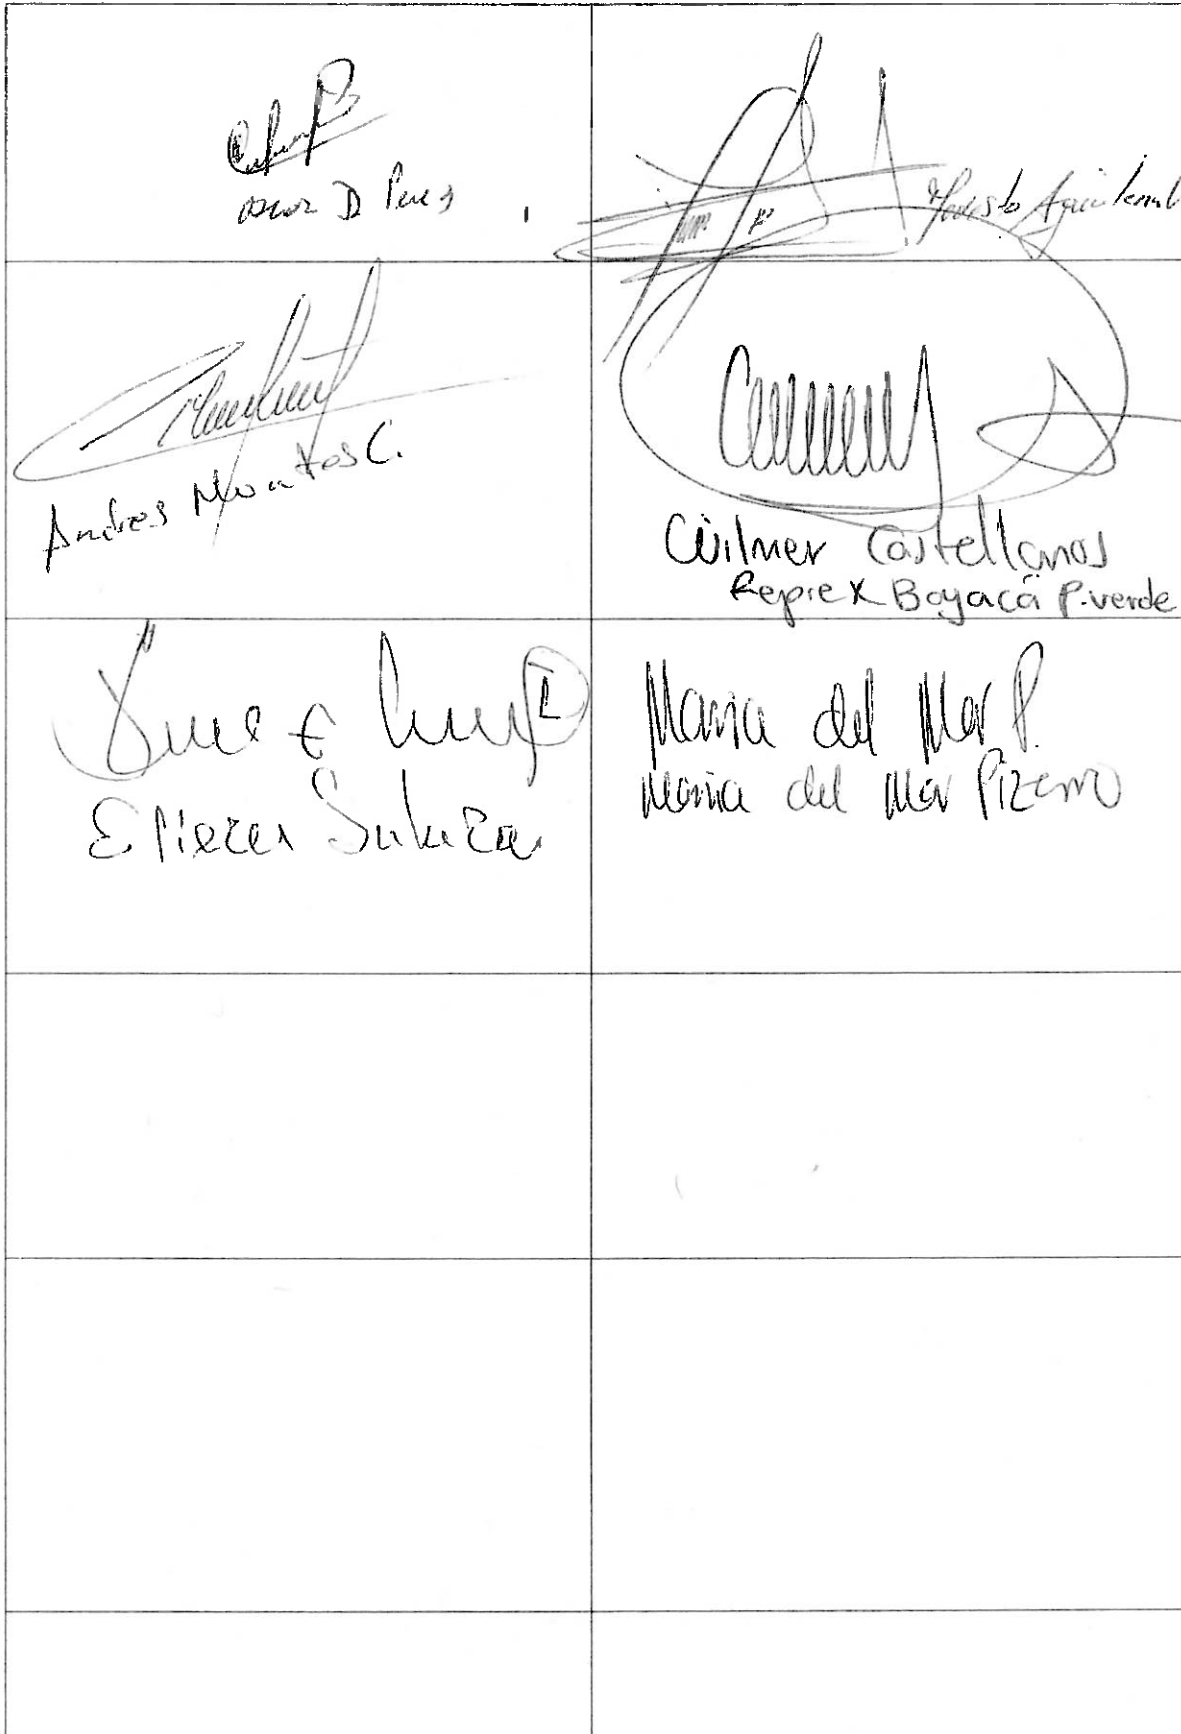 Oscar D Perez
Modesto Aguilera V
Andres Montes C.
Wilmer Castellanos
Repre X Boyacá P. verde
Eliecer Salazar
Maria del Mar P.
Maria del Mar Pizarro